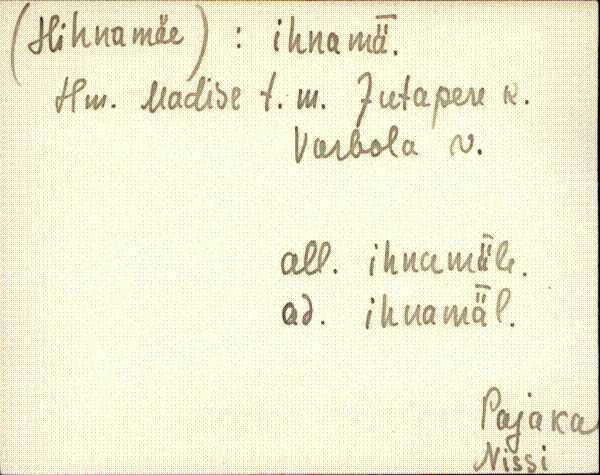 (Hihnamäe) : ihnamǟ.
Hm. Madise t. m. Jutapere k.
Varbola v.
all. ihnamǟle.
ad. ihnamǟl.
Pajaka
Nissi